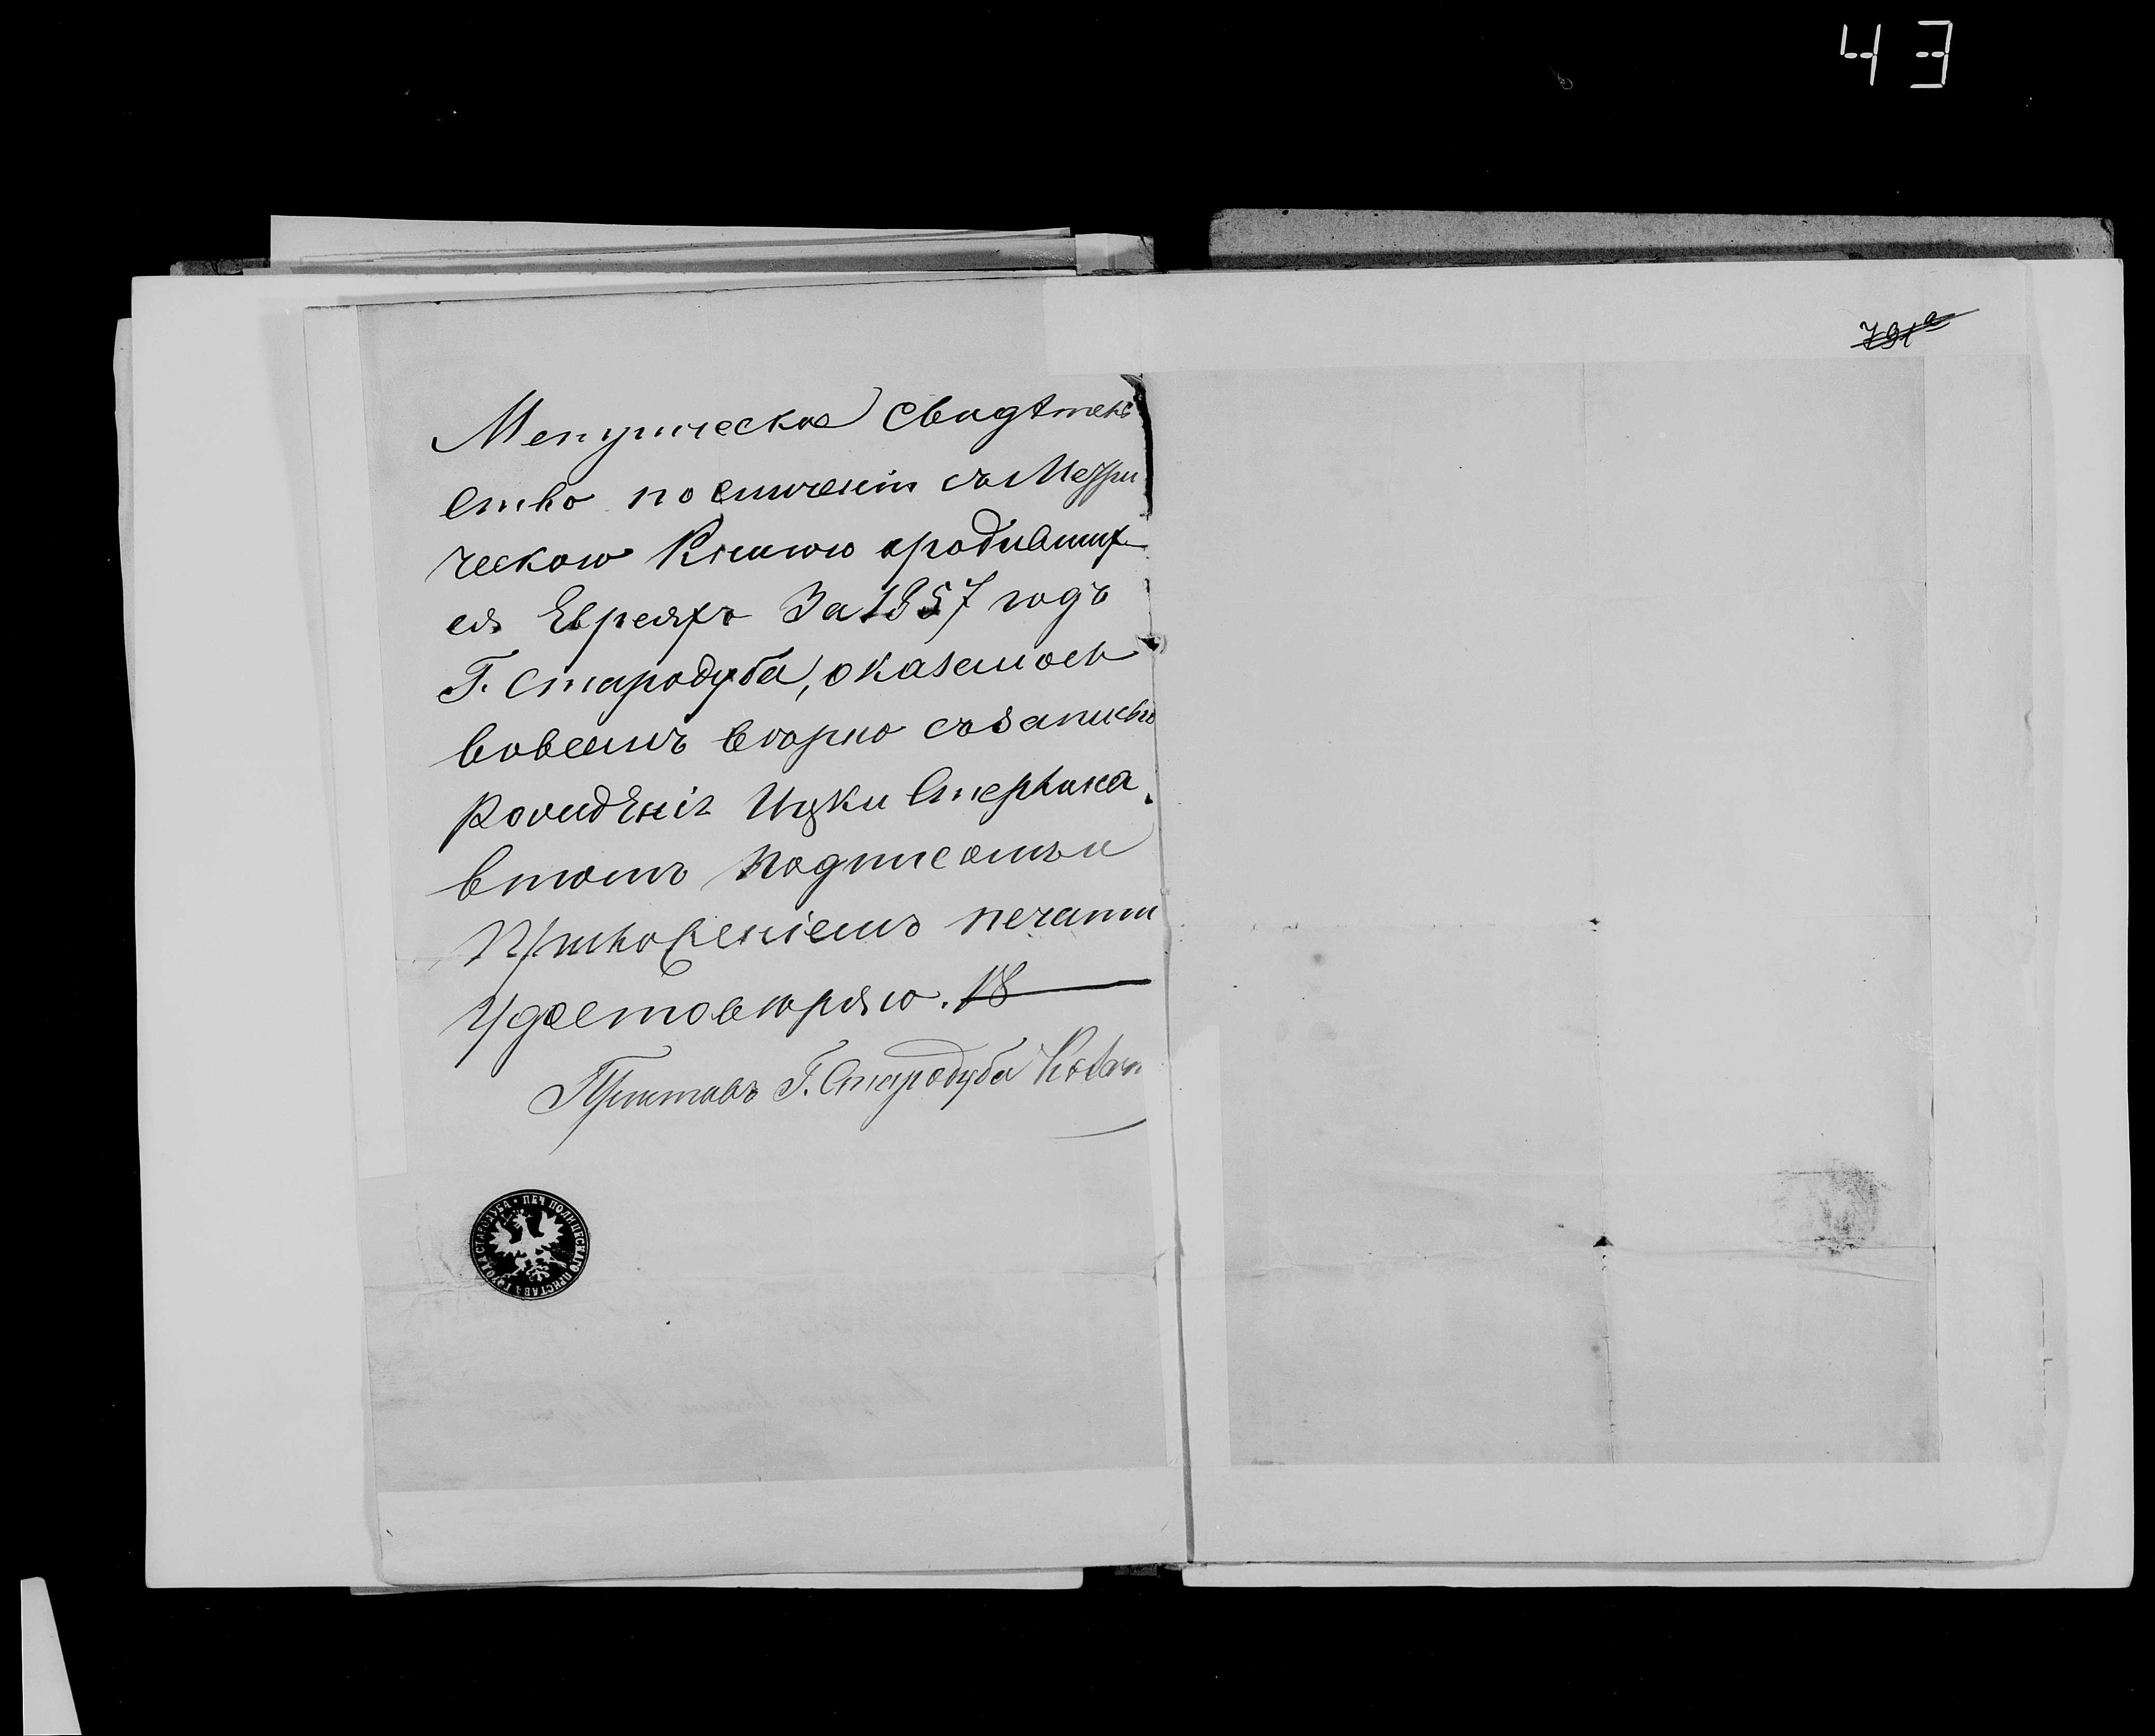 43
791а
Метрическое свидѣтель
ство по сличеніи съ Метри
ческою Книгою ородивших
ся Евреяхъ За 1857 годъ
Г. Стародуба, оказалось
вовсемъ вѣрно съзаписью
Рождѣнія Ицки Стерлина.
втомъ подписомъ и
Приложеніемъ печати
Удостовѣряю. 18
Приставъ Г. Стародуба
ПЕЧ ПОЛИЦЕСКАГО ПРИСТАВА ГОРОДА СТАРОДУБА